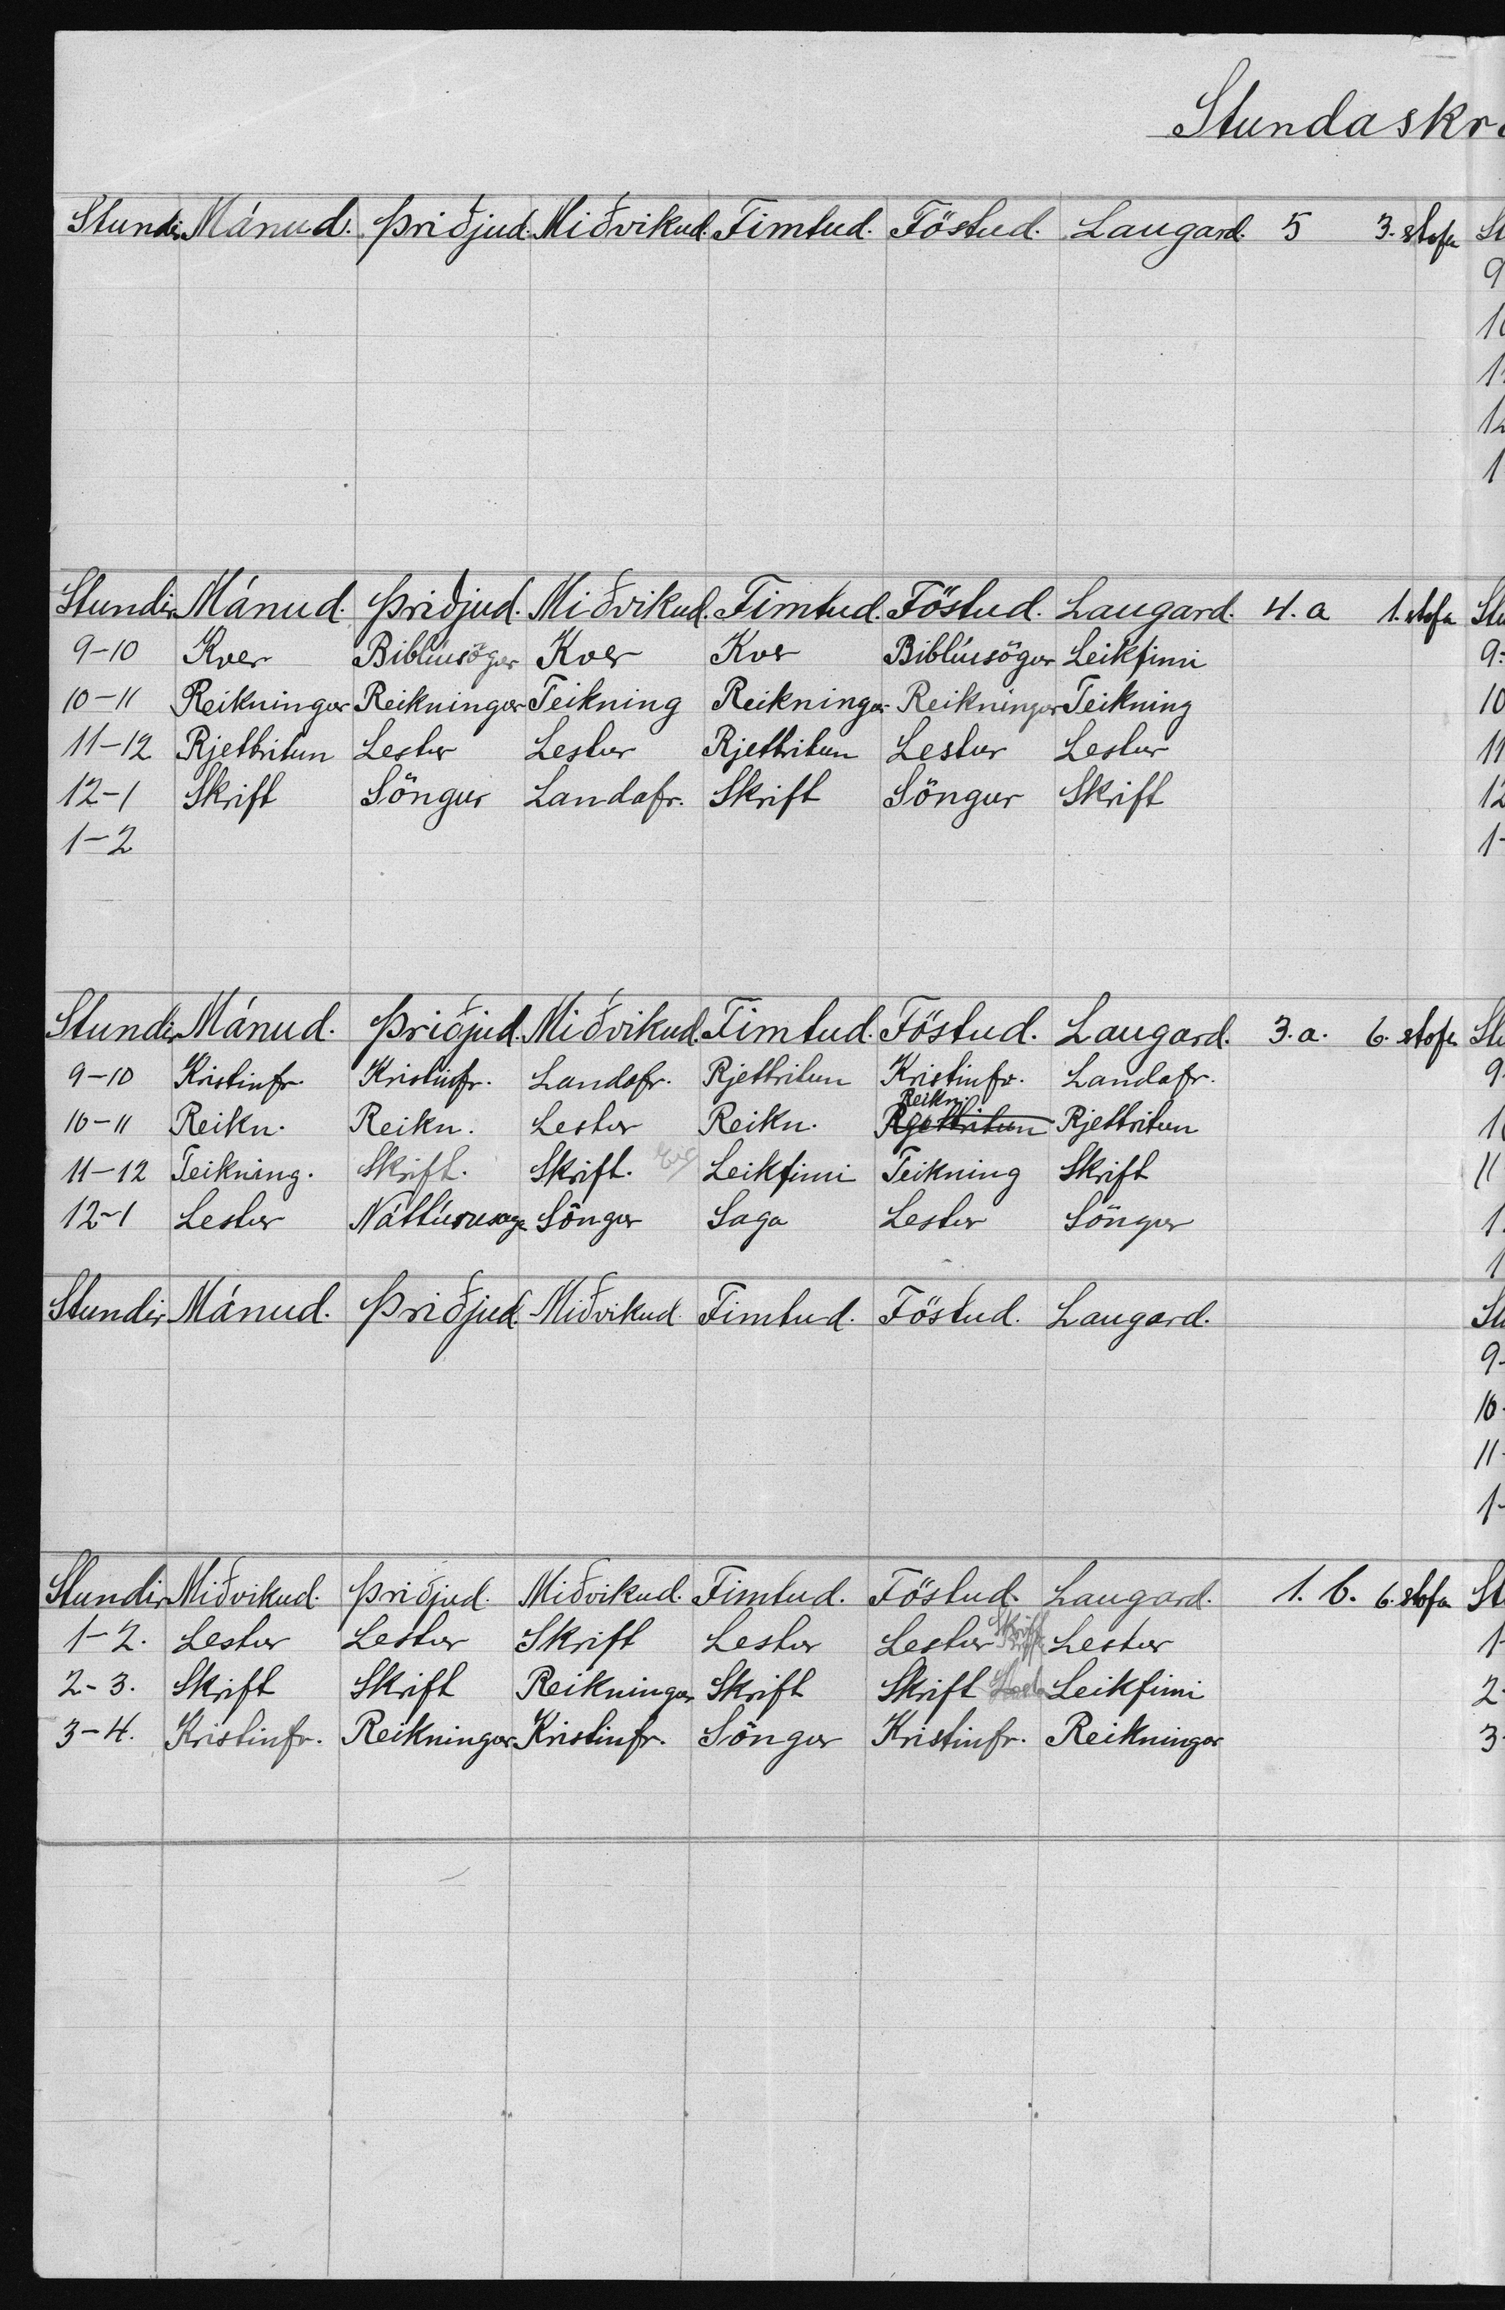 Stundaskr
Stundir Mánud. Þriðjud. Miðvikud. Fimtud. Föstud. Laugard. 5 3. stofa St
9
10
1
12
1
Stundir Mánud. Þriðjud. Miðvikud. Fimtud. Föstud. Laugard. 4. a 1. stofa Stu
9-10 Kver Biblíusögur Kver Kver Biblíusögur Leikfimi 9-
10-11 Reikningur Reikningur Teikning Reikningur Reikningur Teikning 10
11-12 Rjettritun Lestur Lestur Rjettritun Lestur Lestur 11
12-1 Skrift Söngur Landafr. Skrift Söngur Skrift 12
1-2 1-
Stundir Mánud. Þriðjud. Miðvikud. Fimtud. Föstud. Laugard. 3. a. 6. stofa Stu
9-10 Kristinfr. Kristinfr. Landafr. Rjettritun Kristinfr. Landafr. 9-
10-11 Reikn. Reikn. Lestur Reikn. Reikn. Rjettritun Rjettritun 1
11-12 Teikning. Skrift. Skrift. Leikfimi Teikning Skrift 11
12-1 Lestur Náttúrusaga Söngur Saga Lestur Söngur 1
1
Stundir Mánud. Þriðjud. Miðvikud. Fimtud. Föstud. Laugard. Stu
9-
10-
11-
1-
Stundir Miðvikud. Þriðjud. Miðvikud. Fimtud. Föstud. Laugard. 1. b. 6. stofa St
1-2. Lestur Lestur Skrift Lestur Lestur Skrift Lestur 1-
2-3. Skrift Skrift Reikningur Skrift Skrift Leikfimi 2-
3-4. Kristinfr. Reikningur Kristinfr. Söngur Kristinfr. Reikningur 3-